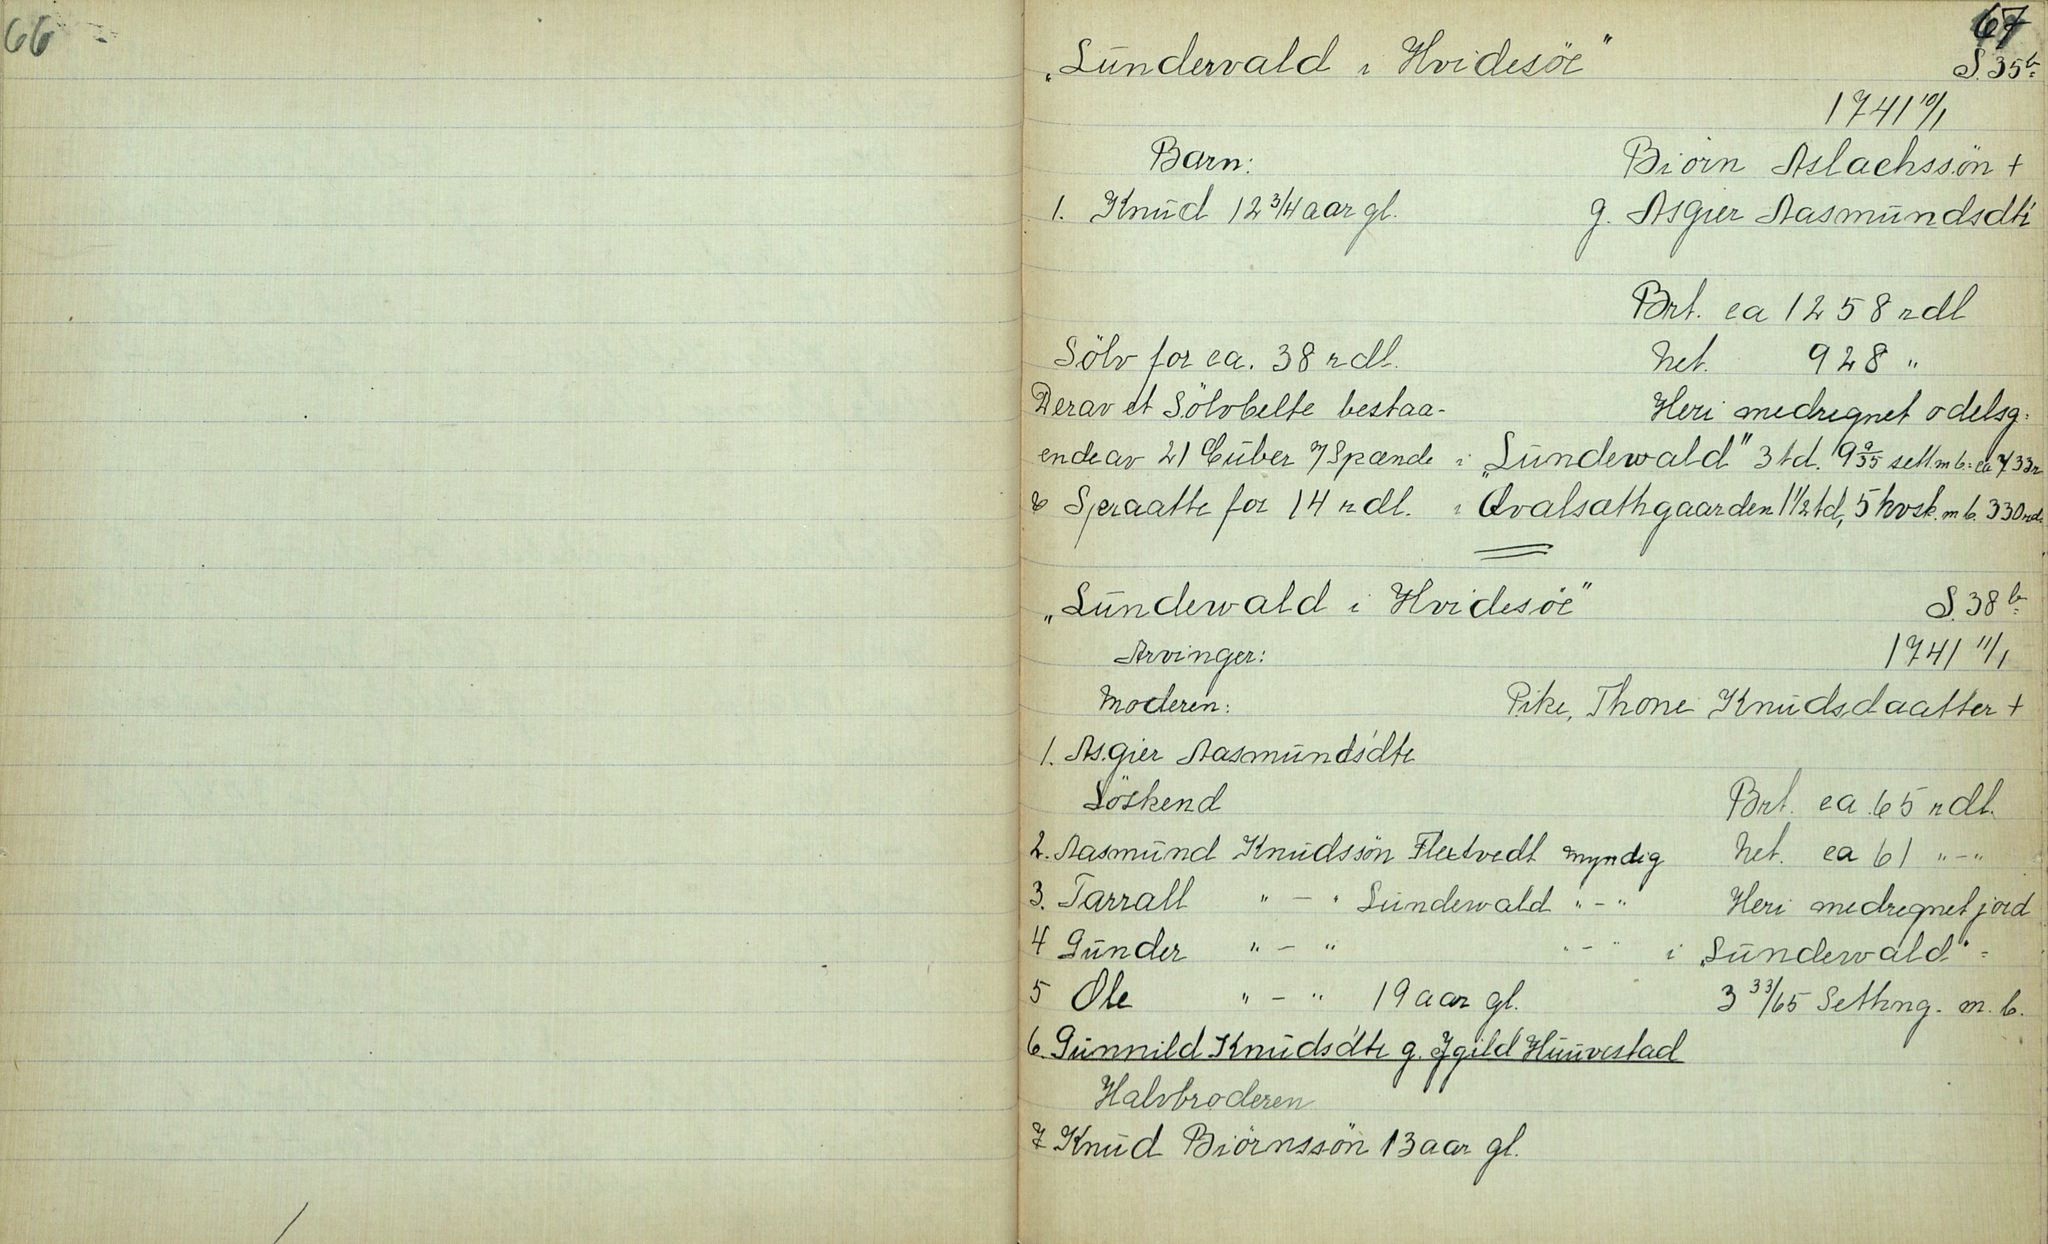 66
67
„Lundervald i Hvidesöe" S. 35b
1741 10/1
Barn: Biörn Aslachssön +
1. Knud 12 3/4 aar gl. g. Asgier Aasmundsdtr
Brt. ca 1258 rdl
Sölv for ca. 38 rdl. Net. 928 "
Derav et Sölvbelte bestaa- Heri medregnet odelsg.
ende av 21 7 Spænde i „Lundewald" 3 td. 9 9/35 sett. m b. = ca 733 r
& for 14 rdl. i Qvalsæthgaarden 1 1/2 td, 5 kvsk. m b. 330 rd.
„Lundewald i Hvidesöe" S. 38b
Arvinger: 1741 11/1
Moderen: Pike, Thone Knudsdaatter +
1. Asgier Aasmundsdtr
Söskend Brt. ca 65 rdl.
2. Aasmund Knudssön Flextvedt myndig Net. ca 61 "-"
3. Tarrall "-" Lundewald "-" Heri medregnet jord
4 Gunder "-" "-" i „Lundewald" =
5 Ole "-" 19 aar gl. 3 33/65 Sethng. m. b.
6. Gunnild Knudsdtr g. Igild Huuvestad
Halvbroderen
7 Knud Biörnssön 13 aar gl.